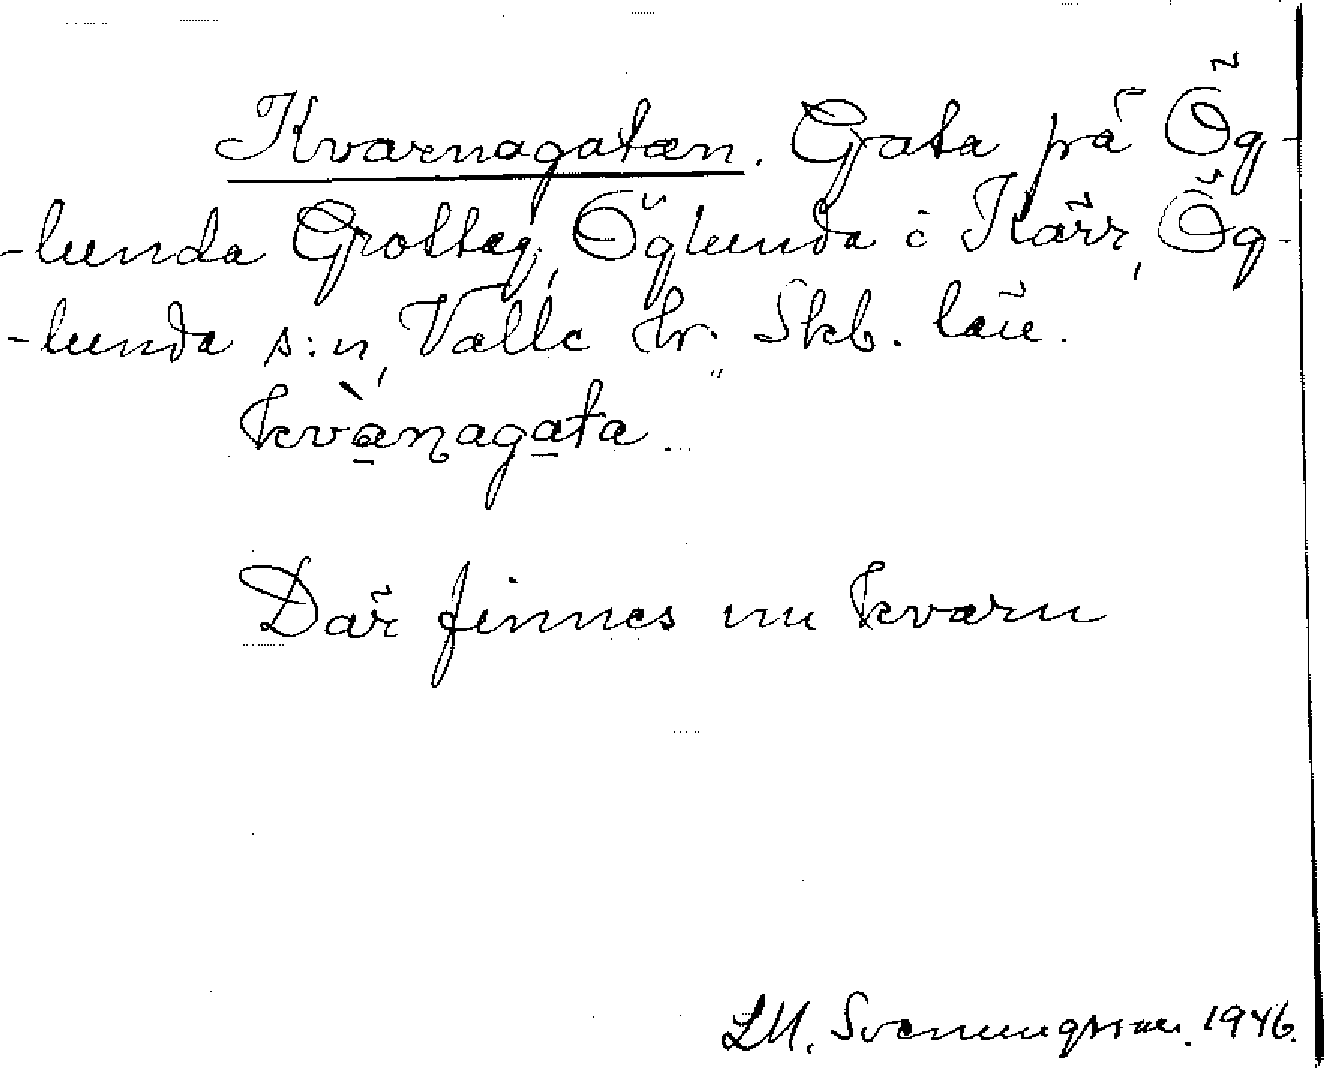 Kvarnagatan. Gata på Ög-
-lunda Grolleg, Öglunda i Kärr, Ög-
-lunda s:n, Valle hr. Skb. län.
kvànagata.
Där finnes nu kvarn
LM. Svenungsson. 1946.